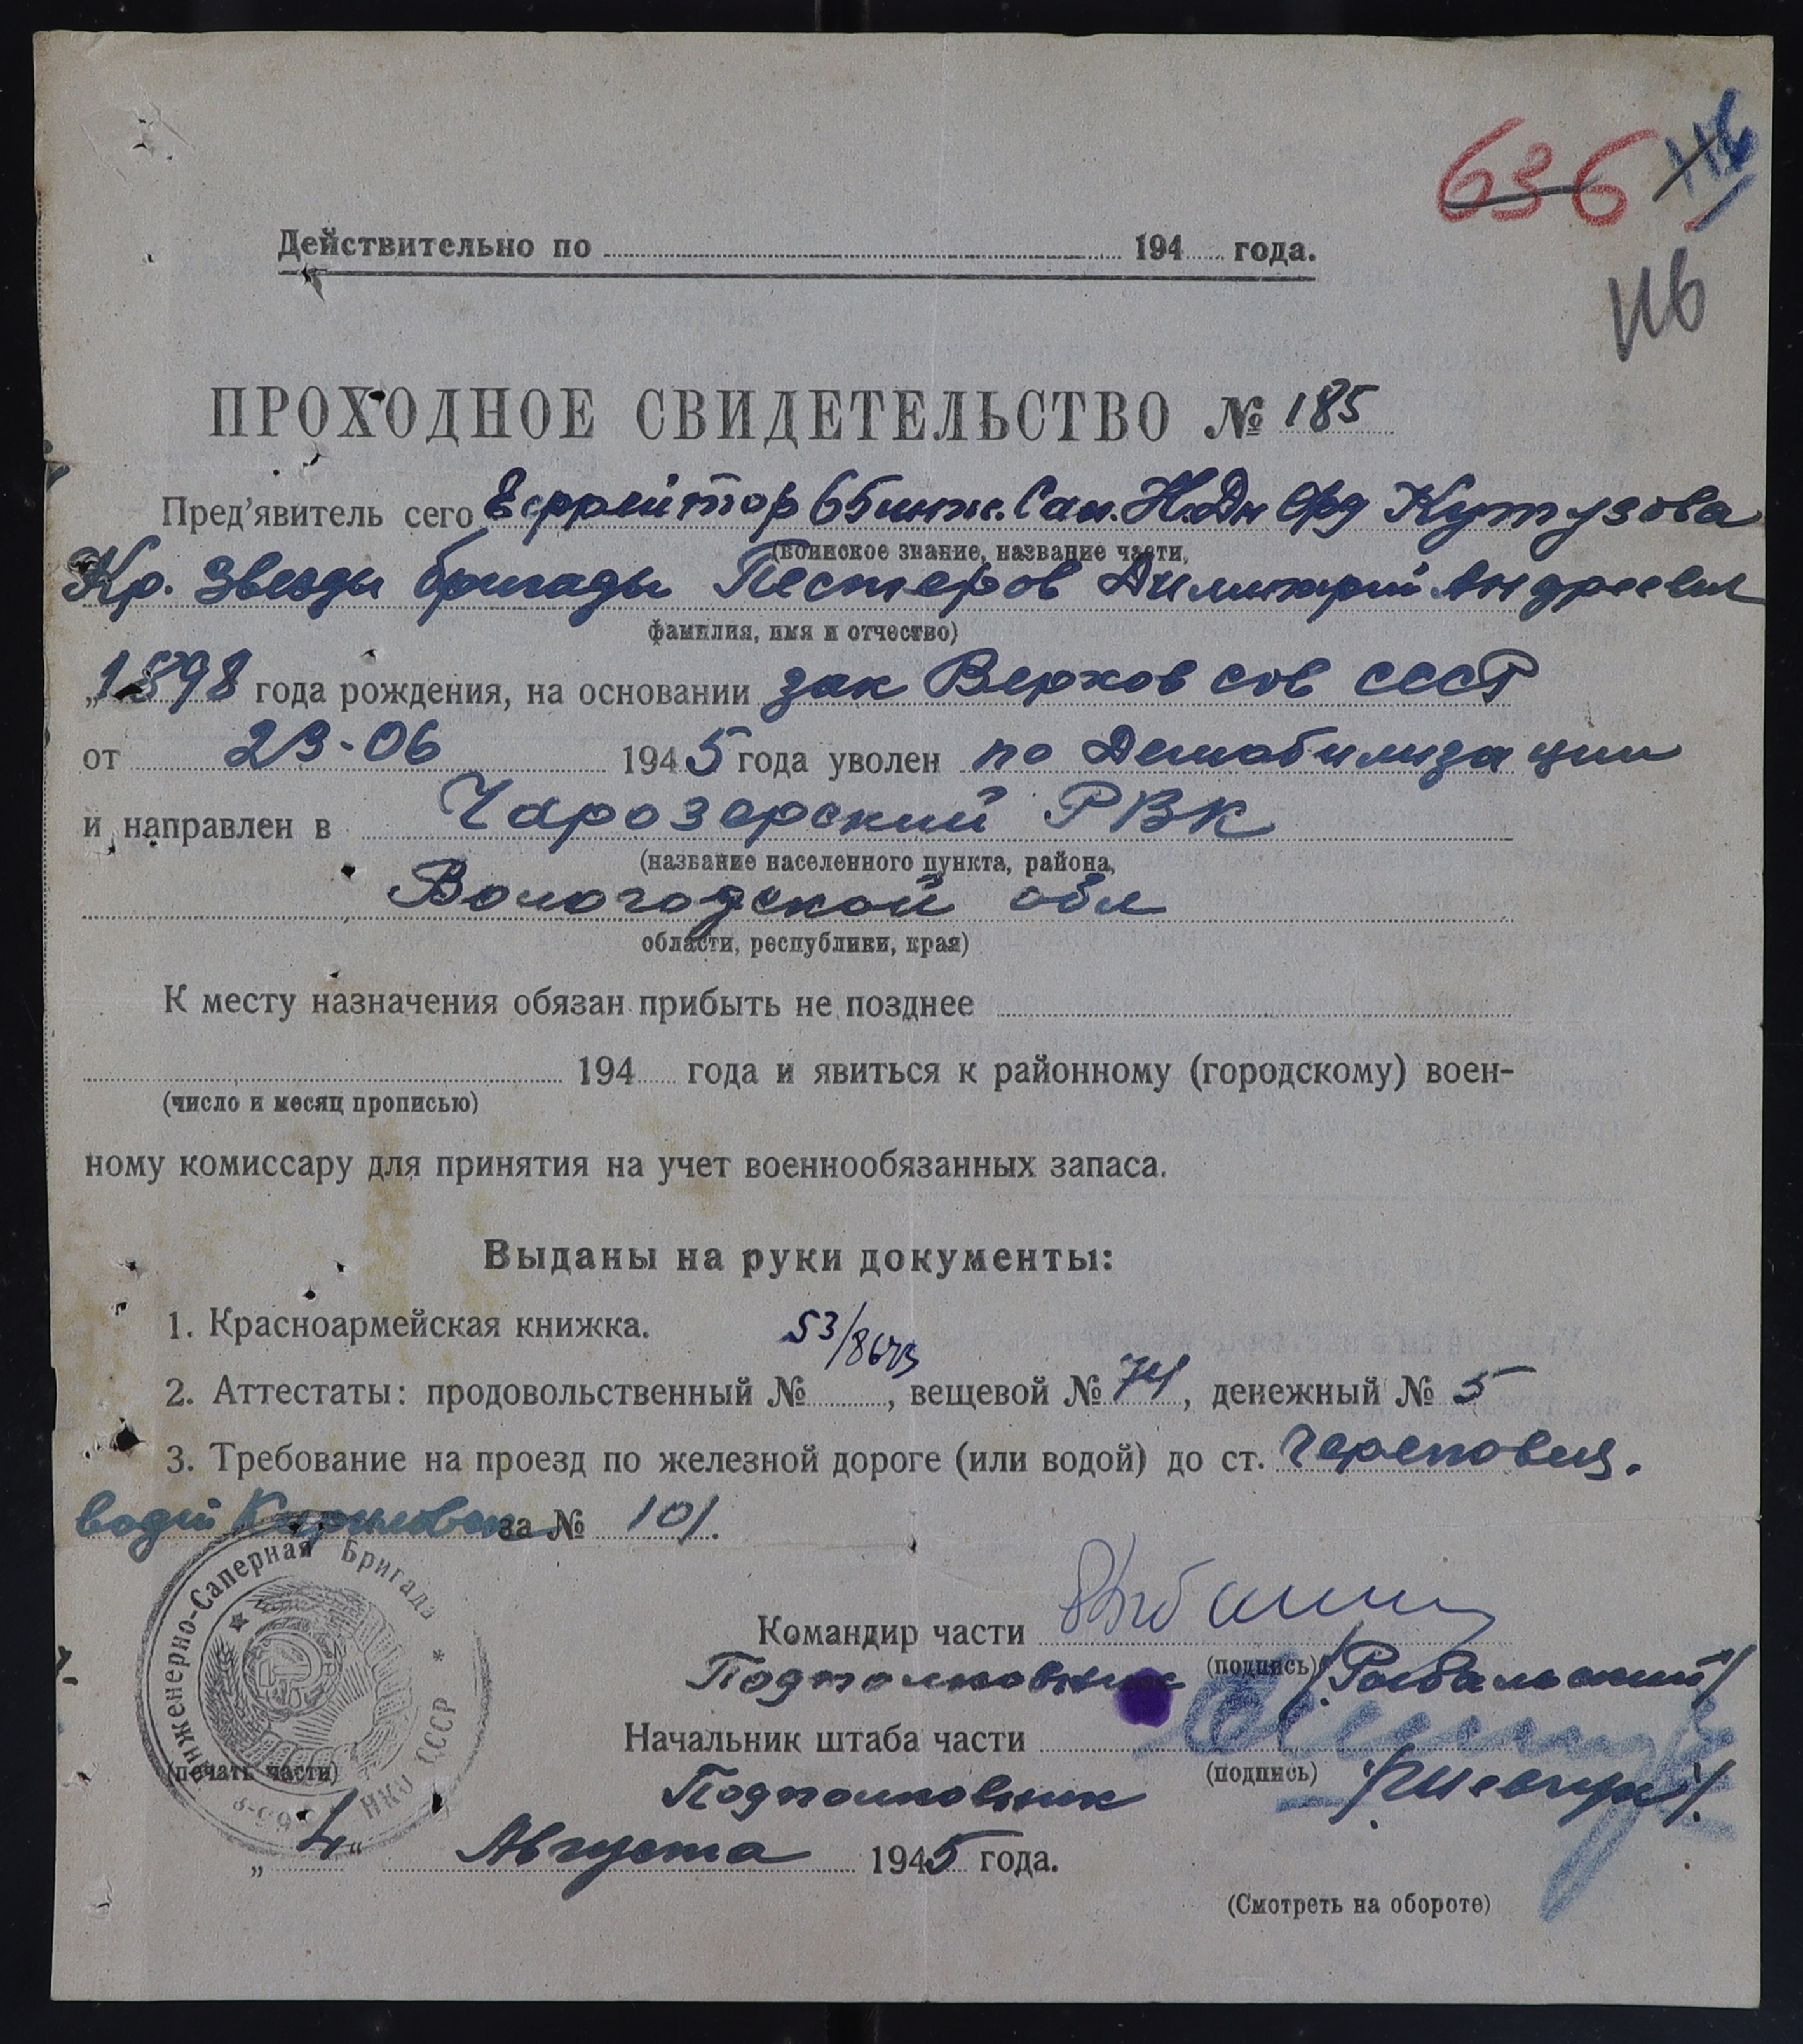 636
116
Действительно по 194 года.
116
ПРОХОДНОЕ СВИДЕТЕЛЬСТВО № 185
Пред'явитель сего Ефрейтор 65 инж. Сап. Н.Дн Орд Кутузова
(воинское звание, название части,
Кр. Звезды бригады Пестеров Димитрий Андреевич
фамилия, имя и отчество)
„1898 года рождения, на основании зак Верхов сов СССР
от 23-06 1945 года уволен по Демобилизации
и направлен в Чарозерский РВК
(название населенного пункта, района,
Вологодской обл
области, республики, края)
К месту назначения обязан прибыть не позднее
194 года и явиться к районному (городскому) воен-
(число и месяц прописью)
ному комиссару для принятия на учет военнообязанных запаса.
Выданы на руки документы:
1. Красноармейская книжка.
53/
2. Аттестаты: продовольственный № , вещевой № 74, денежный № 5
3. Требование на проезд по железной дороге (или водой) до ст. Череповец.
водой за № 101.
Инженерно-Саперная Бригада * НКО СССР
Командир части
(подпись)
Подполковник /Рыбальский/
Начальник штаба части
(подпись)
Подполковник /Шевчук/.
(печать части)
„4“ Августа 1945 года.
(Смотреть на обороте)